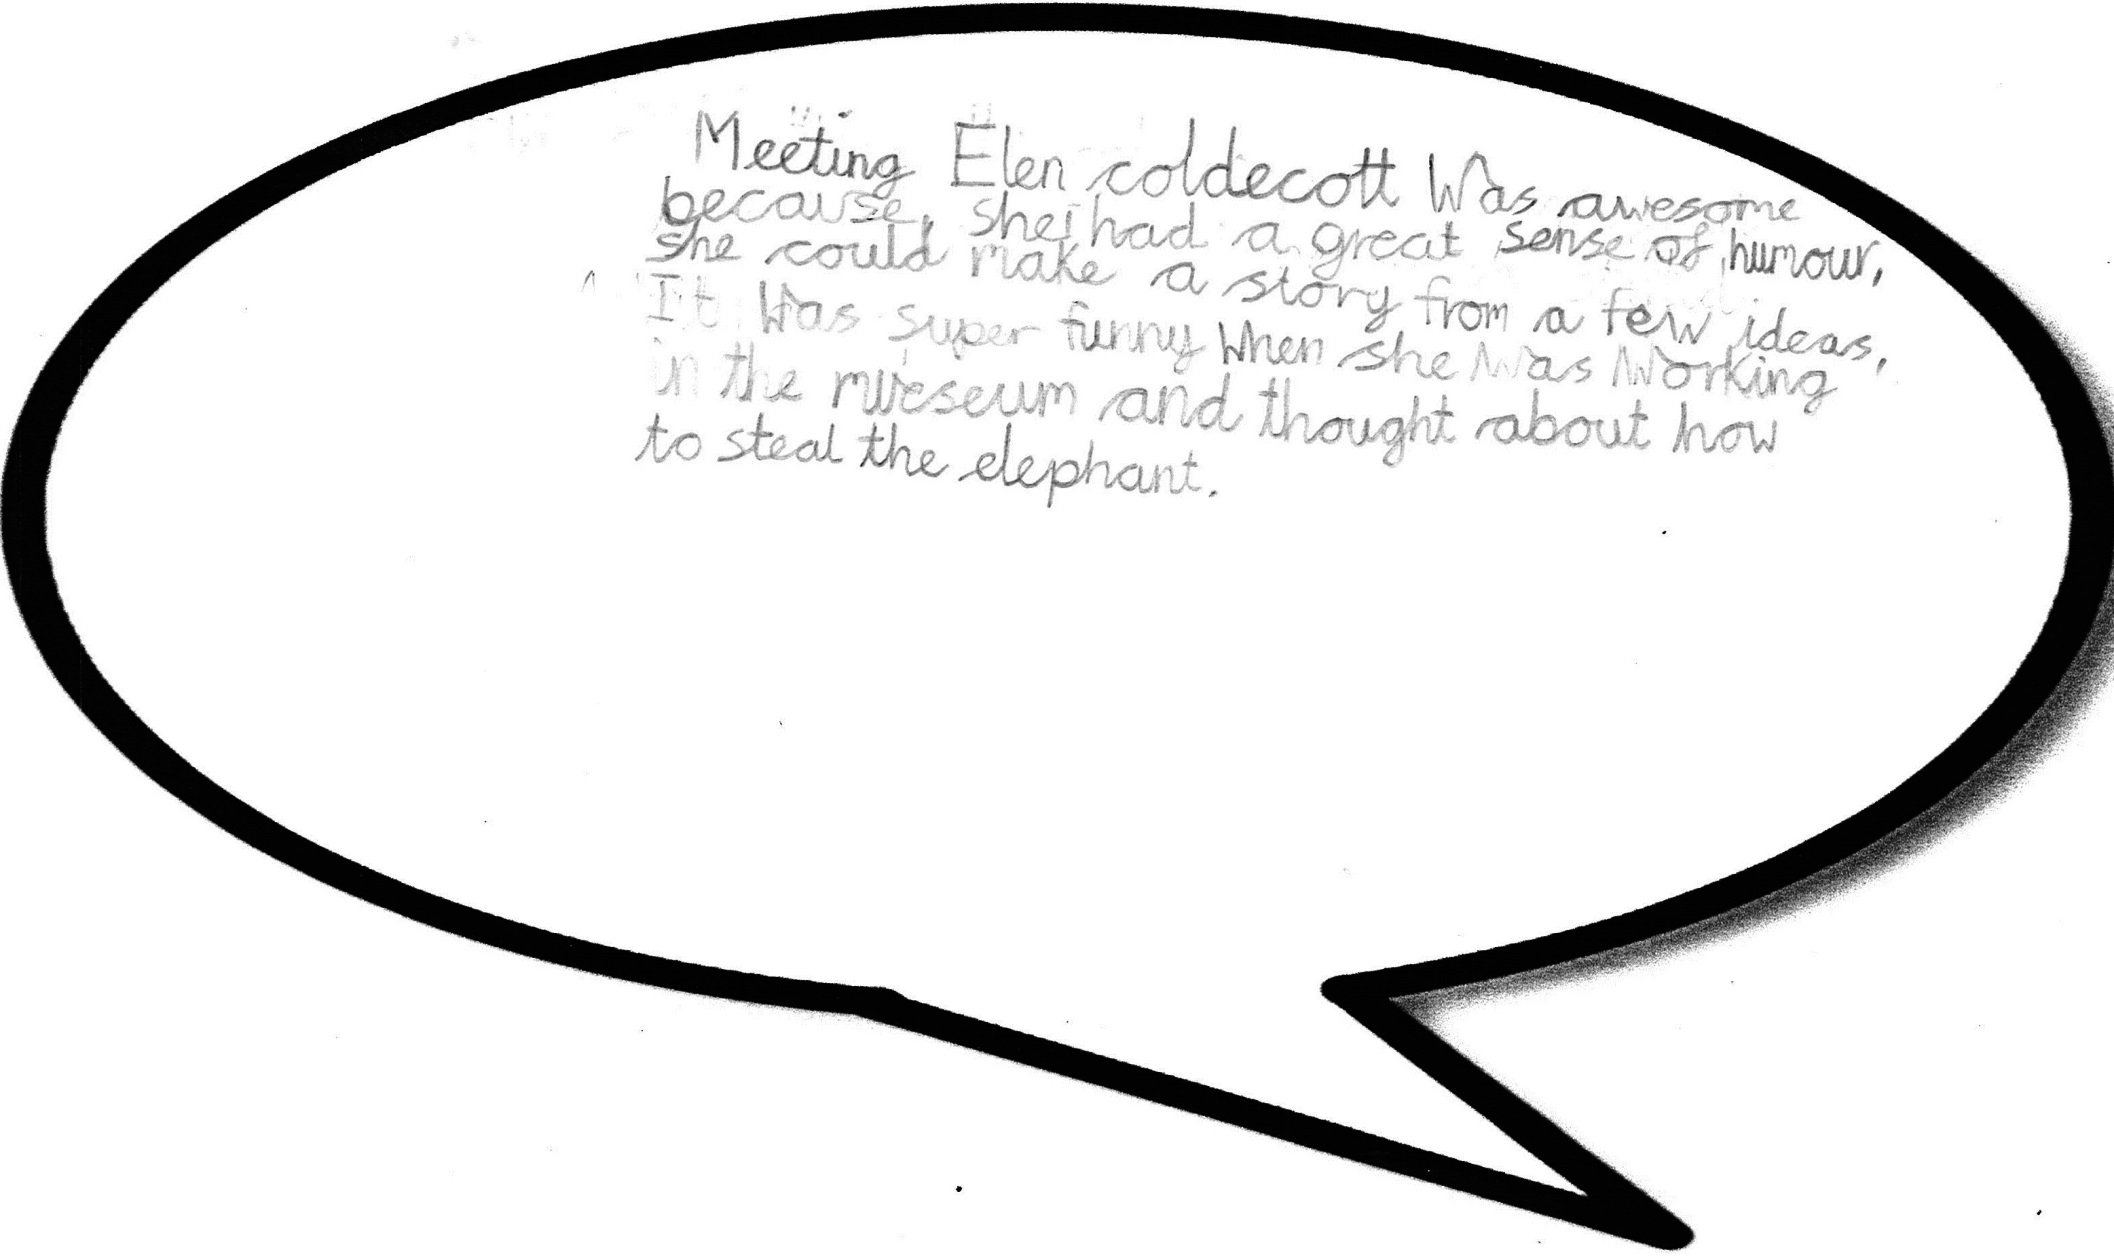 Meeting Elen coldecott Was awesome
because, she had a great sense of humour,
she could make a story from a few ideas,
It Was super funny When she Was Working
in the mueseum and thought about how
to steal the elephant.